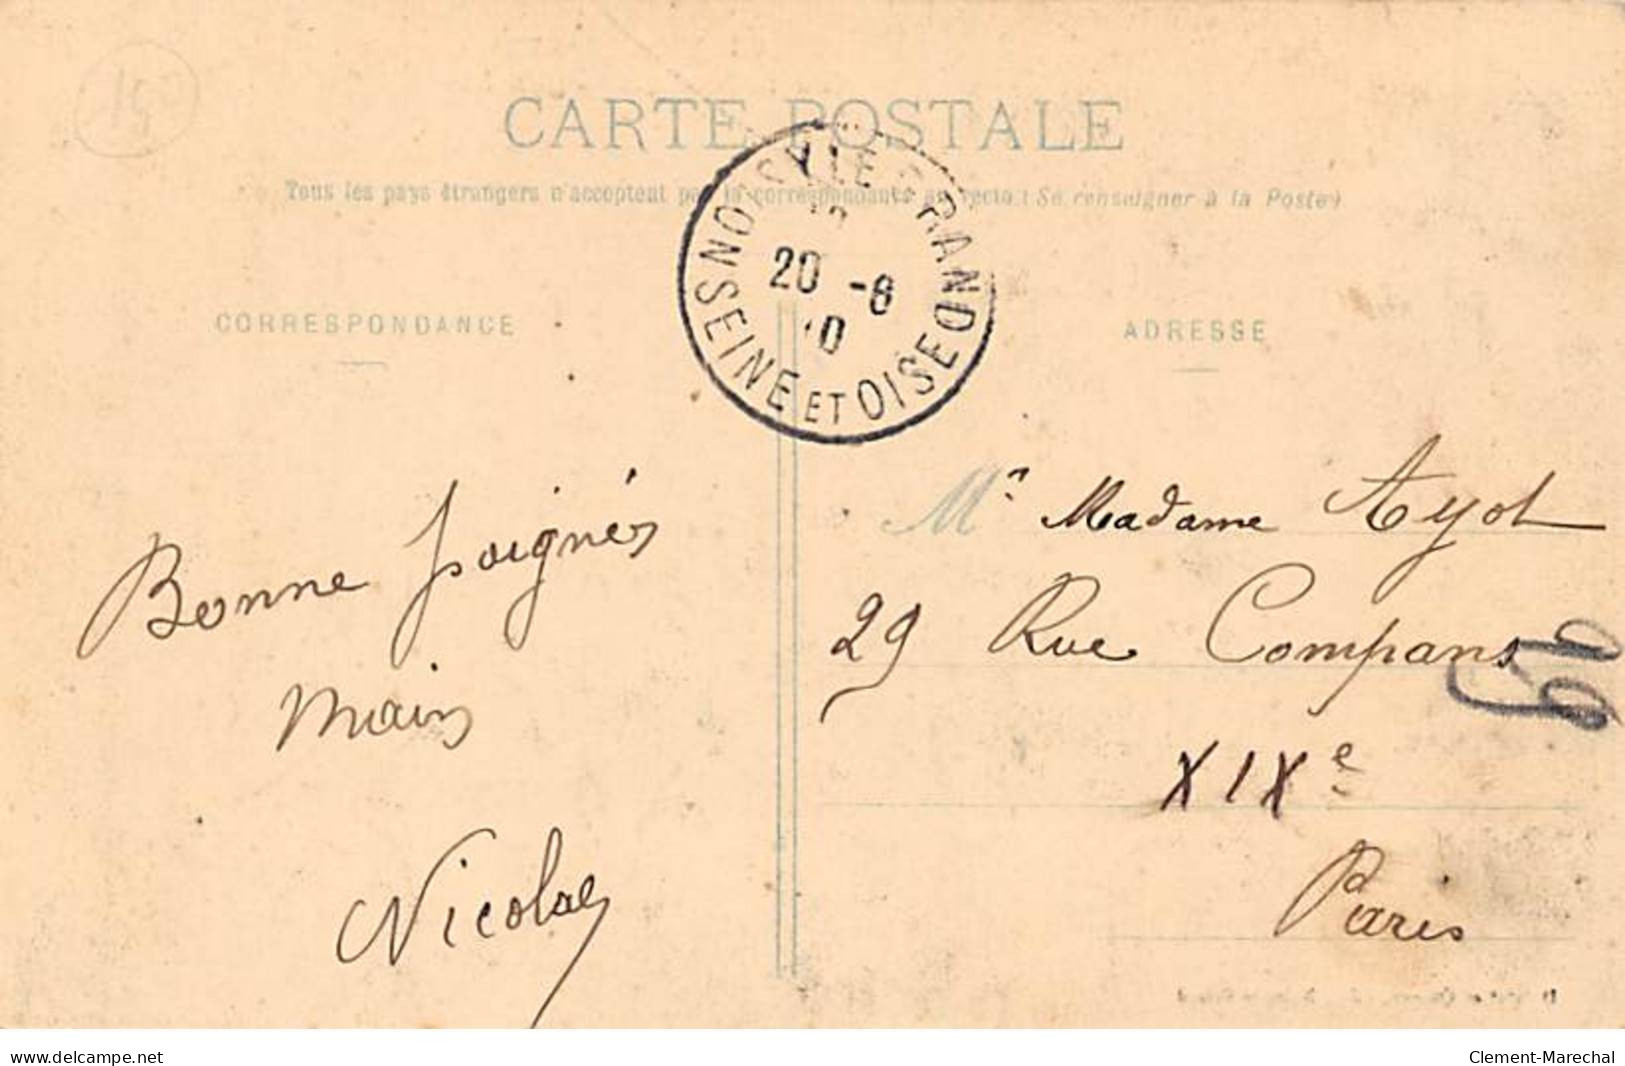 15
CARTE POSTALE
Tous les pays étrangers n'acceptent pas la correspondance au recto: (Se renseigner à la Poste)
NOISY LE GRAND
20 -8
10
SEINE ET OISE
CORRESPONDANCE
ADRESSE
Bonne poignés
main
Nicolas
Mr Madame Ayot
29 Rue Compans
XIXe
Paris
delcampe.net
Clement-Marechal